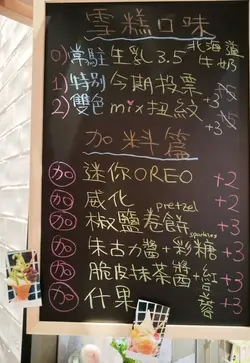 雪糕口味
0) 常駐 生乳3.5 北海道牛奶
1) 特別 今期投票 +3
2) 雙色 mix扭紋 +3
加料篇
加 迷你OREO +2
加 威化 +2
加 椒鹽卷餅 pretzel +3
加 朱古力醬+彩糖 sparkles +3
加 脆皮抹茶醬+紅 +3
加 什果 +3